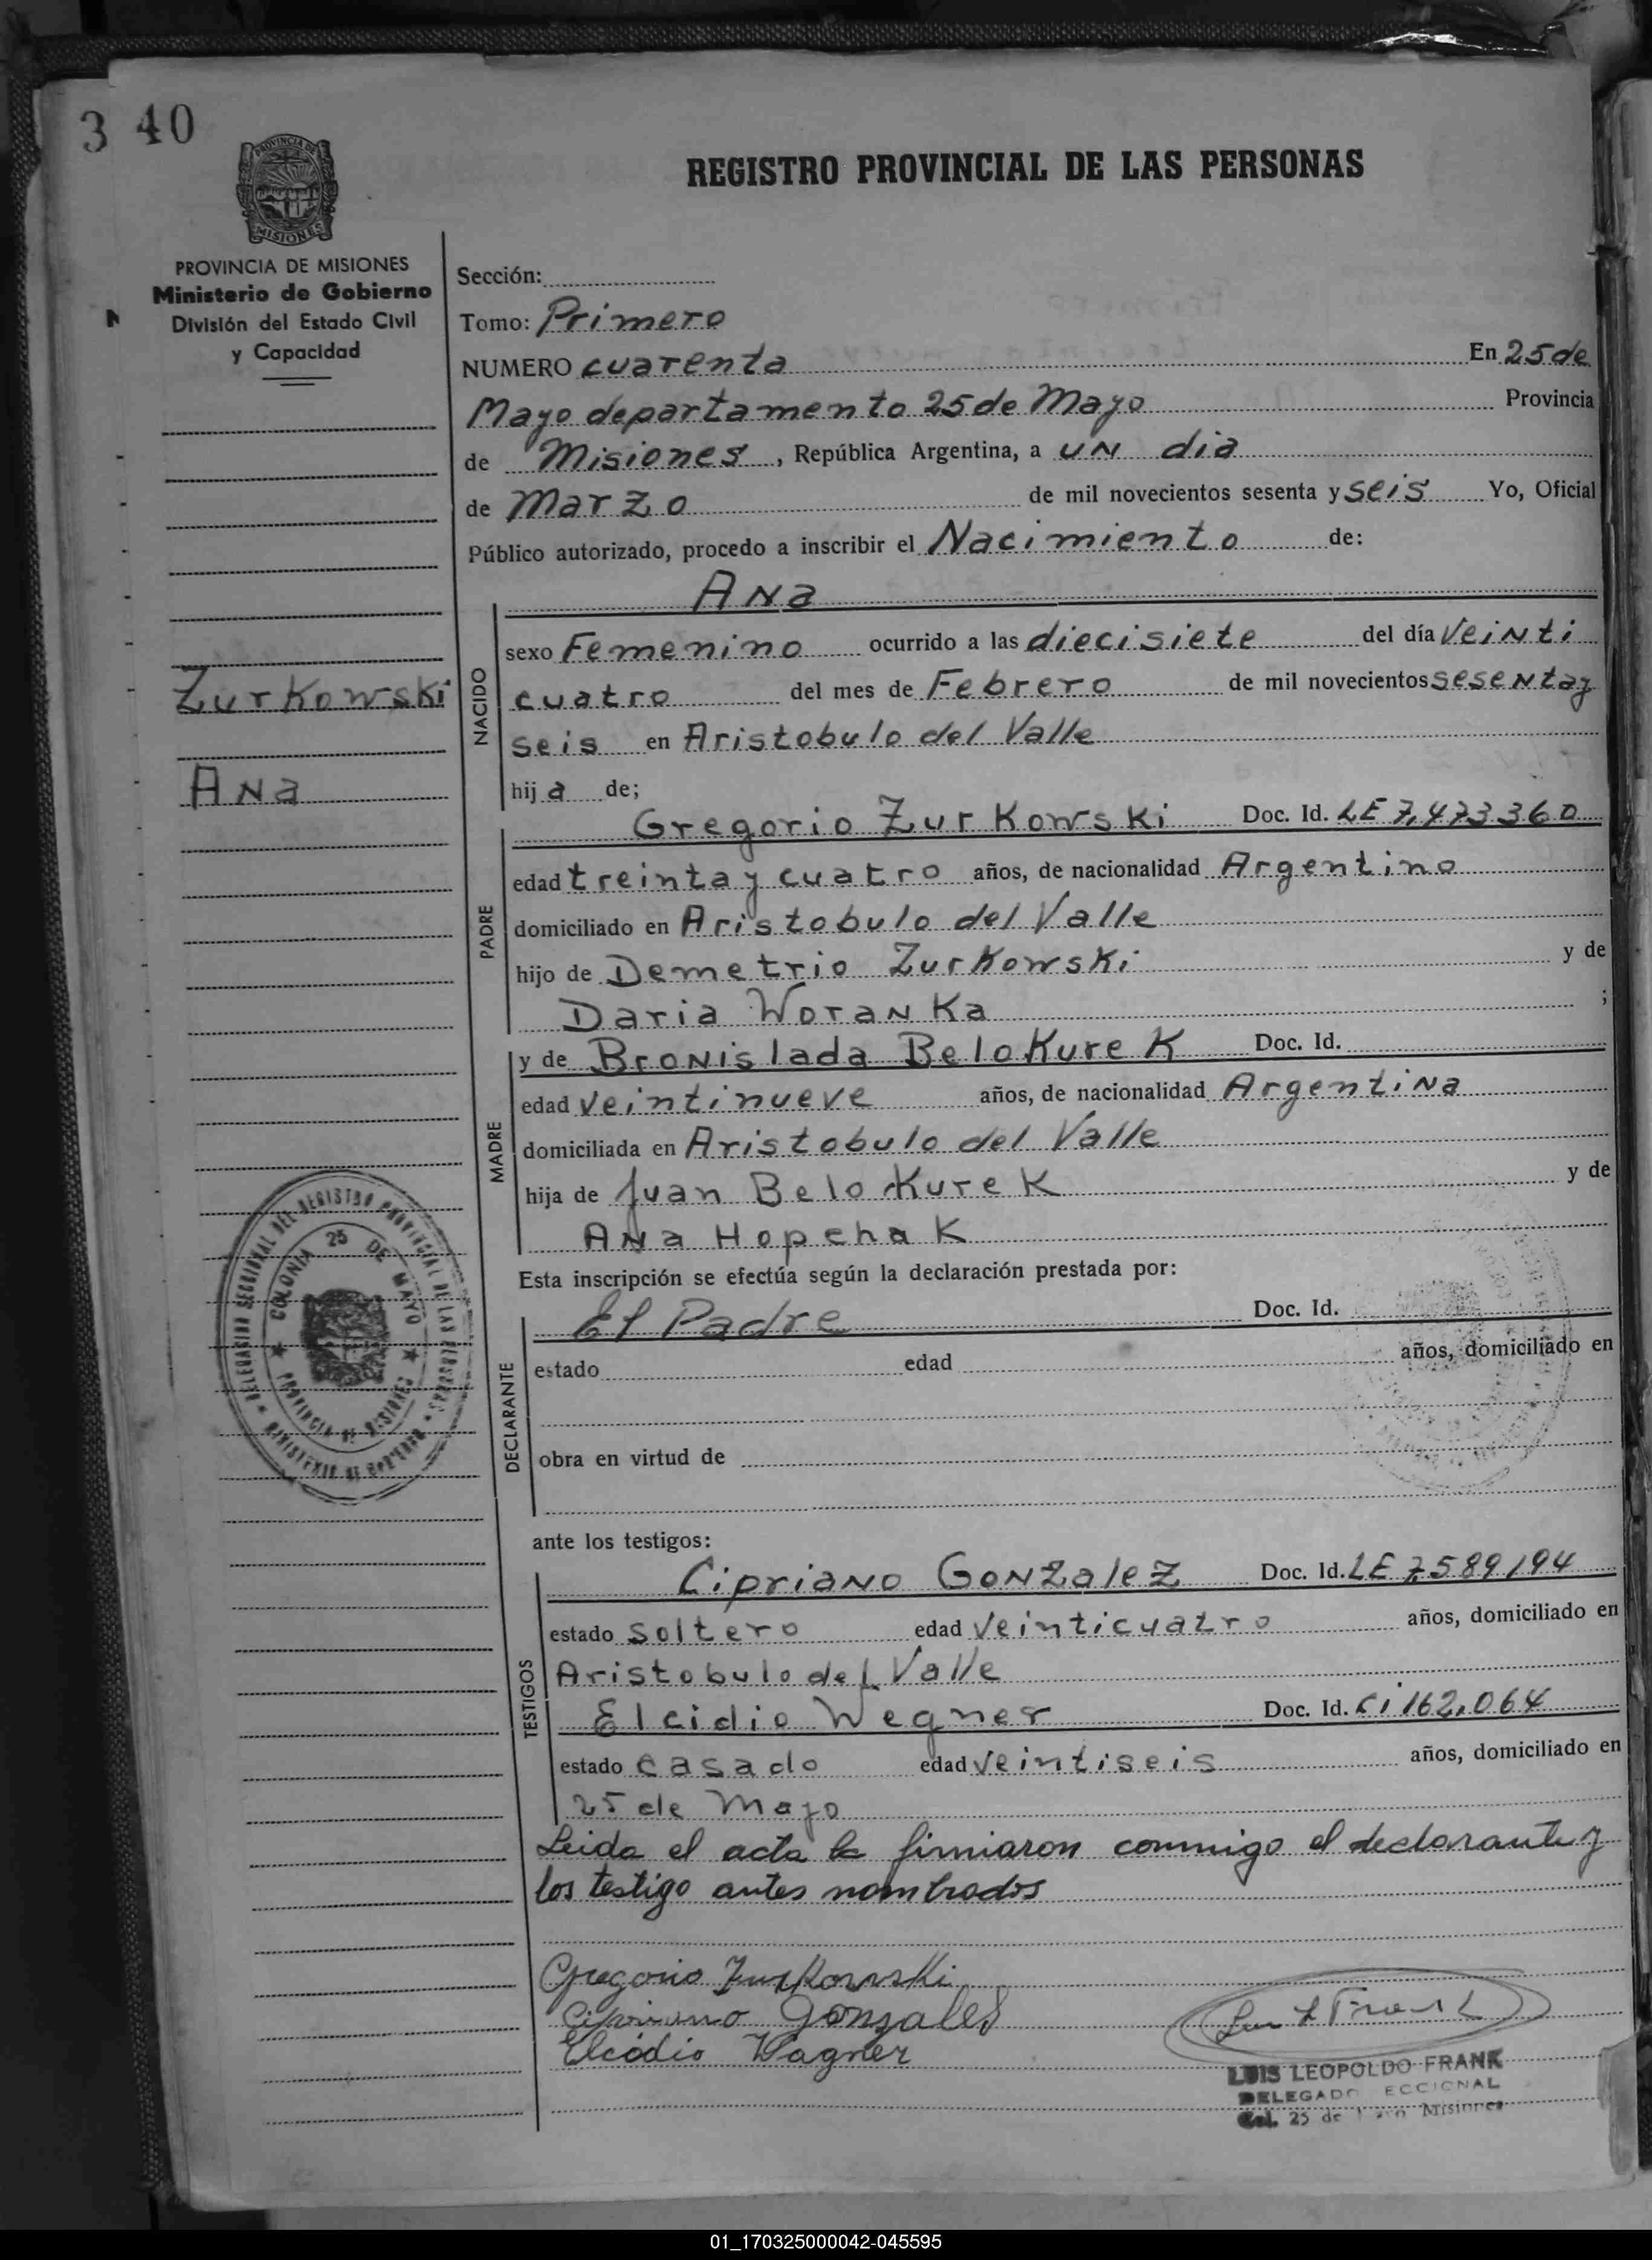 3 40
REGISTRO PROVINCIAL DE LAS PERSONAS
PROVINCIA DE MISIONES
PROVINCIA DE MISIONES
Ministerio de Gobierno
División del Estado Civil
y Capacidad
Sección:
Tomo: Primero
NUMERO cuarenta En 25 de
Mayo departamento 25 de Mayo Provincia
de Misiones, República Argentina, a un dia
de Marzo de mil novecientos sesenta y seis Yo, Oficial
Público autorizado, procedo a inscribir el Nacimiento de:
Zurkowski
Ana
NACIDO
Ana
sexo Femenino ocurrido a las diecisiete del día veinti
cuatro del mes de Febrero de mil novecientos sesenta y
seis en Aristobulo del Valle
hija de;
PADRE
Gregorio Zurkowski Doc. Id. LE 7,473360
edad treinta y cuatro años, de nacionalidad Argentino
domiciliado en Aristobulo del Valle
hijo de Demetrio Zurkowski y de
Daria Woranka ;
MADRE
y de Bronislada Belokurek Doc. Id.
edad veintinueve años, de nacionalidad Argentina
domiciliada en Aristobulo del Valle
hija de Juan Belokurek y de
Ana Hopchak
Esta inscripción se efectúa según la declaración prestada por:
DECLARANTE
El Padre Doc. Id.
estado edad años, domiciliado en
obra en virtud de
DELEGACION SECCIONAL DEL REGISTRO PROVINCIAL DE LAS PERSONAS
MINISTERIO DE GOBIERNO
COLONIA 25 DE MAYO
PROVINCIA DE MISIONES
ante los testigos:
TESTIGOS
Cipriano Gonzalez Doc. Id. LE 7.589194
estado soltero edad veinticuatro años, domiciliado en
Aristobulo del Valle
Elcidio Wegner Doc. Id. Ci 162.064
estado casado edad veintiseis años, domiciliado en
25 de Mayo
Leida el acta la firmaron conmigo el declarante y
los testigo antes nombrados
Gregorio Zurkowski
Cipriano Gonzales
Elcidio Wagner
LUIS LEOPOLDO FRANK
DELEGADO ECCIONAL
Col. 25 de Misiones
01_170325000042-045595